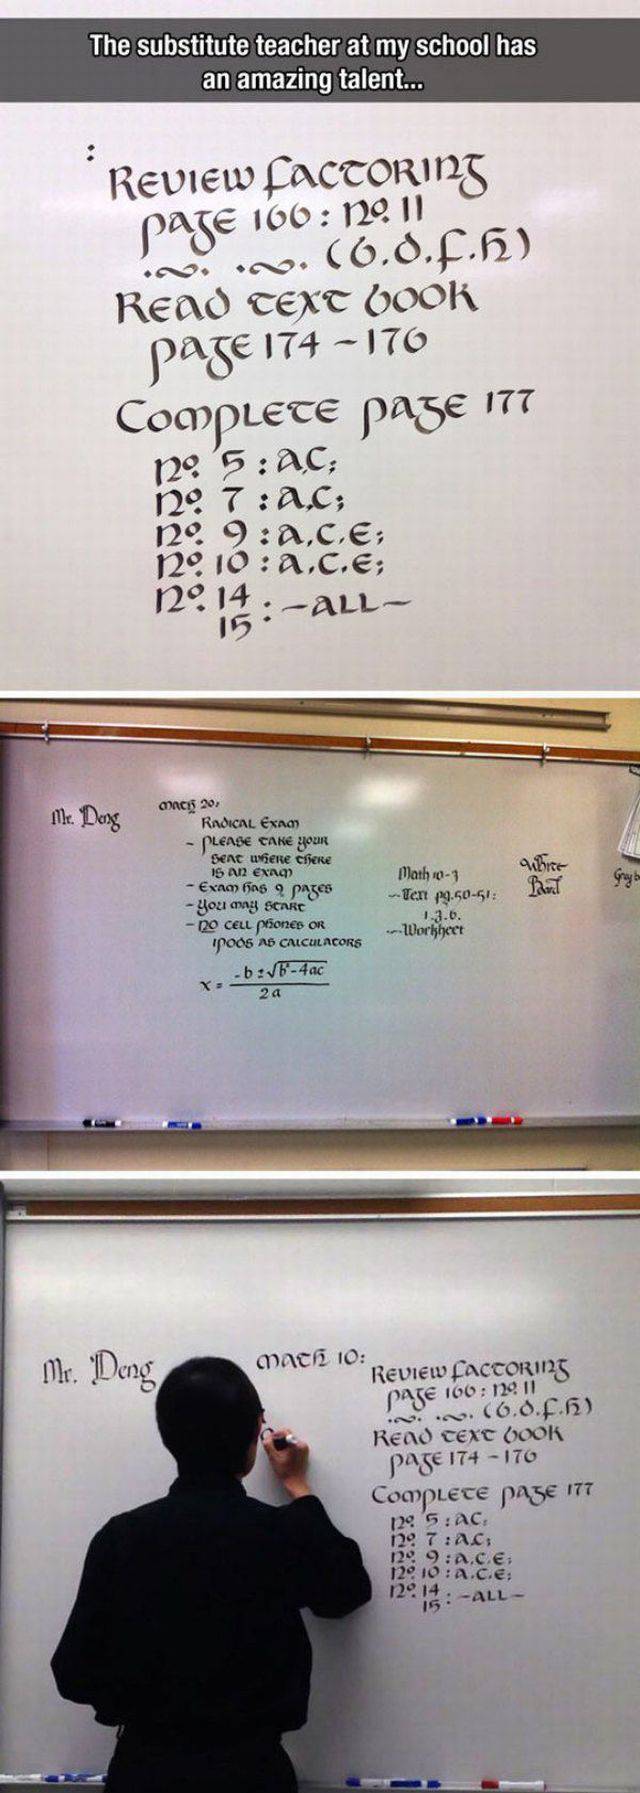 The substitute teacher at my school has
an amazing talent...
:
Review factoring
page 166 : no. 11
.~. .~. (b.d.f.h)
Read text book
page 174 - 176
Complete page 177
no. 5 : a.c;
no. 7 : a.c;
no. 9 : a.c.e;
no. 10 : a.c.e;
no. 14
15 : -all-
Mr. Deng
Math 20:
Radical Exam
- Please take your
seat where there
is an exam
- Exam has 9 pages
- You may start
- no cell phones or
ipods as calculators
x = -b ± √b²-4ac
2a
Math 10-3
- Text pg. 50-51:
1.3.6.
- Worksheet
White
Board
Mr. Deng
Math 10:
Review factoring
page 166 : no. 11
.~. .~. (b.d.f.h)
Read text book
page 174 - 176
Complete page 177
no. 5 : a.c;
no. 7 : a.c;
no. 9 : a.c.e;
no. 10 : a.c.e;
no. 14
15 : -all-